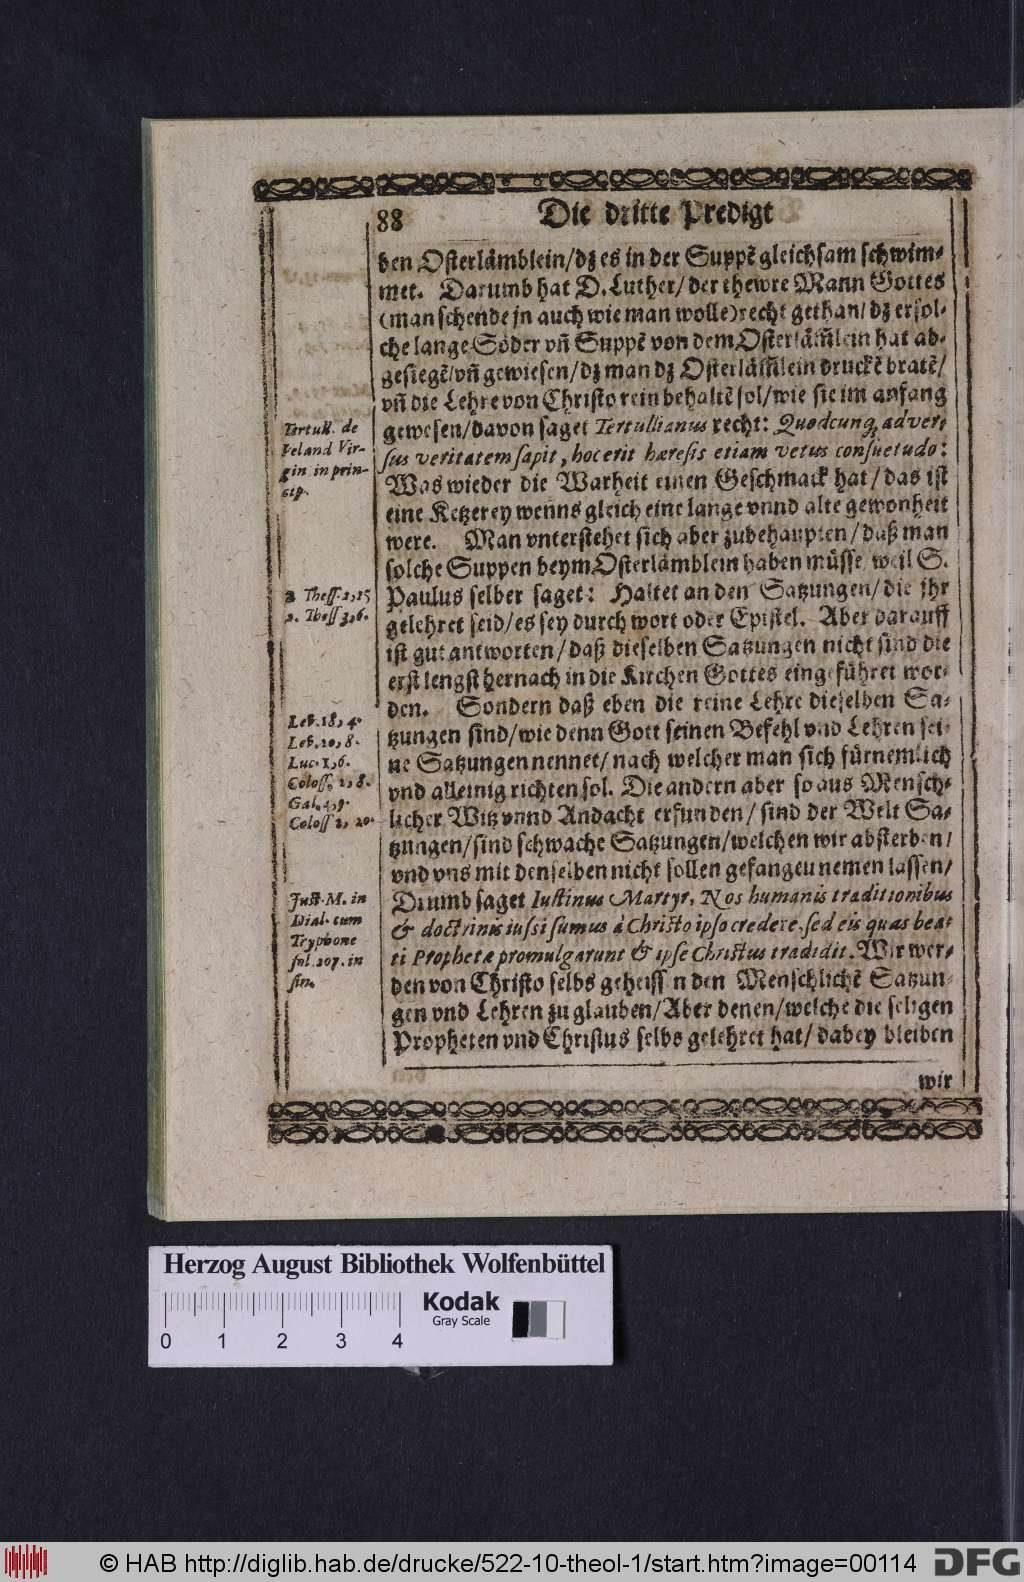 88 Die dritte Predigt
den Osterlämblein/dz es in der Suppē gleichsam schwim-
met. Darumb hat D. Luther/der thewre Mann Gottes
(man schende jn auch wie man wolle) recht gethan/dz er sol-
che lange Söder vñ Suppē von dem Osterläm̃lein hat ab-
gesiegē/vñ gewiesen/dz man dz Osterläm̃lein druckē bratē/
vñ die Lehre von Christo rein behaltē sol/wie sie im anfang
gewesen/davon saget Tertullianus recht: Quodcunq; adver-
sus veritatem sapit, hoc erit hæresis etiam vetus consuetudo:
Was wieder die Warheit einen Geschmack hat/das ist
eine Ketzerey wenns gleich eine lange vnnd alte gewonheit
were. Man vnterstehet sich aber zubehaupten/daß man
solche Suppen beym Osterlämblein haben müsse/weil S.
Paulus selber saget: Haltet an den Satzungen/die jhr
gelehret seid/es sey durch wort oder Epistel. Aber darauff
ist gut antworten/daß dieselben Satzungen nicht sind die
erst lengst hernach in die Kirchen Gottes eingeführet wor-
den. Sondern daß eben die reine Lehre dieselben Sa-
tzungen sind/wie denn Gott seinen Befehl vnd Lehren sei-
ne Satzungen nennet/nach welcher man sich fürnemlich
vnd alleinig richten sol. Die andern aber so aus Mensch-
licher Witz vnnd Andacht erfunden/sind der Welt Sa-
tzungen/sind schwache Satzungen/welchen wir absterben/
vnd vns mit denselben nicht sollen gefangeu nemen lassen/
Drumb saget Iustinus Martyr, Nos humanis traditionibus
& doctrinis iussi sumus à Christo ipso credere, sed eis quas bea-
ti Prophetæ promulgarunt & ipse Christus tradidit. Wir wer-
den von Christo selbs geheissen den Menschlichē Satzun-
gen vnd Lehren zu glauben/Aber denen/welche die seligen
Propheten vnd Christus selbs gelehret hat/dabey bleiben
wir
Tertull. de
Veland Vir-
gin in prin-
cip.
2 Thess. 2, 15
2. Thess 3, 6.
Lev. 18, 4.
Lev. 20, 8.
Luc. 1, 6.
Coloss. 2, 8.
Gal. 4, 9.
Coloss 2, 20.
Just. M. in
Dial. cum
Tryphone
fol. 207. in
fin.
Herzog August Bibliothek Wolfenbüttel
Kodak
Gray Scale
0 1 2 3 4
© HAB http://diglib.hab.de/drucke/522-10-theol-1/start.htm?image=00114
DFG